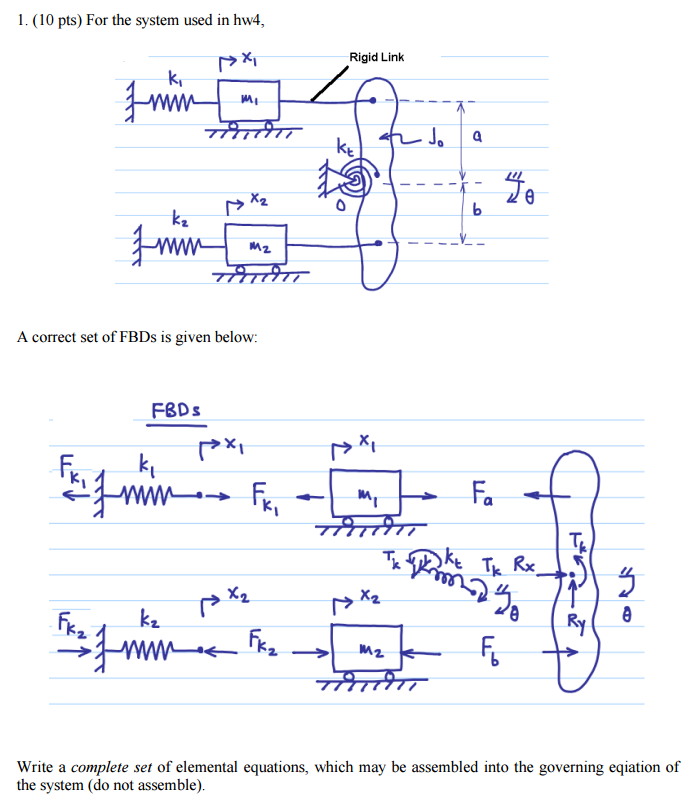 1. (10 pts) For the system used in hw4,
x₁ Rigid Link
k₁
m₁
kₜ J₀ a
θ
x₂ 0 b
k₂
m₂
A correct set of FBDs is given below:
FBDs
x₁ x₁
Fₖ₁ k₁
Fₖ₁ m₁ Fₐ
Tₖ kₜ Tₖ Rₓ Tₖ
x₂ x₂ θ θ
Fₖ₂ k₂ Ry
Fₖ₂ m₂ F_b
Write a complete set of elemental equations, which may be assembled into the governing eqiation of
the system (do not assemble).